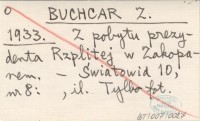 BUCHCAR Z.
1933. Z pobytu prezy-
denta Rzplitej w Zakopa-
nem. – Światowid 10,
nr 8: , il. Tylko fot.